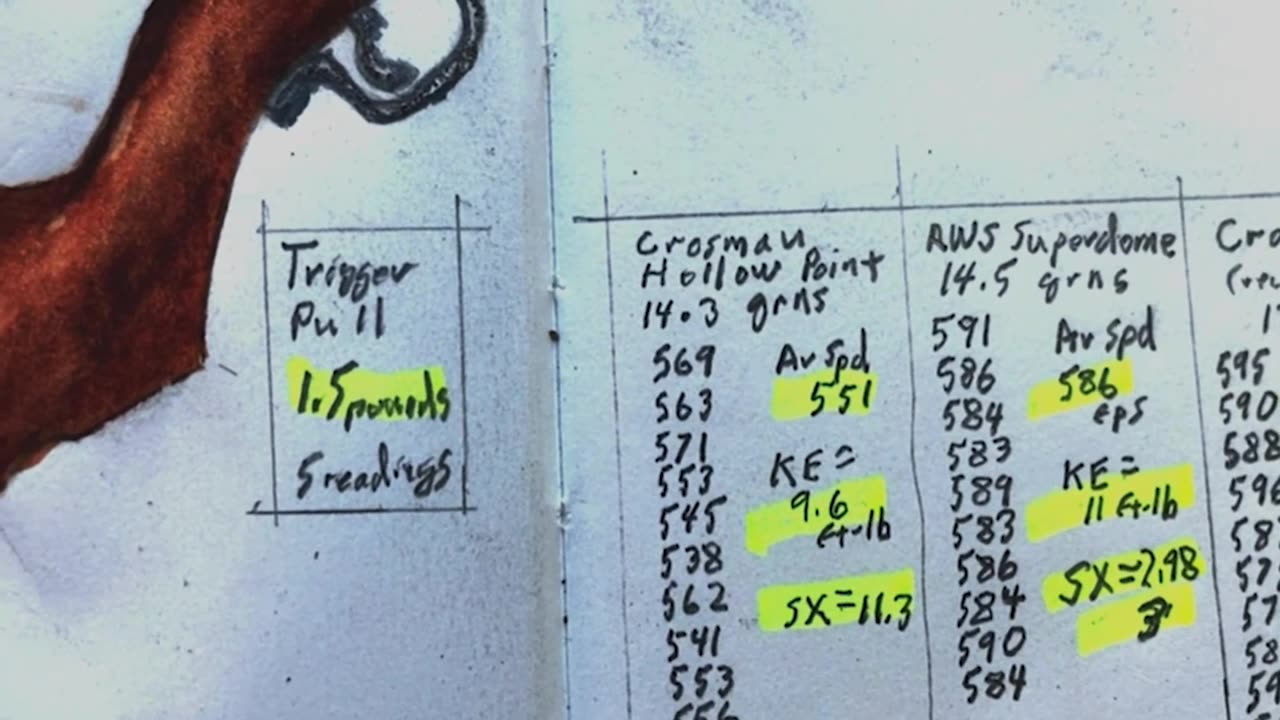 Trigger
Pull
1.5 pounds
5 readings
Crosman
Hollow Point
14.3 grns
569
563
571
553
545
538
562
541
553
556
Av Spd
551
KE=
9.6
ft-lb
SX=11.3
AWS Superdome
14.5 grns
591
586
584
583
589
583
586
584
590
584
Av Spd
586
fps
KE=
11 ft-lb
SX=2.98
3
Cro
595
590
588
596
58
57
57
58
59